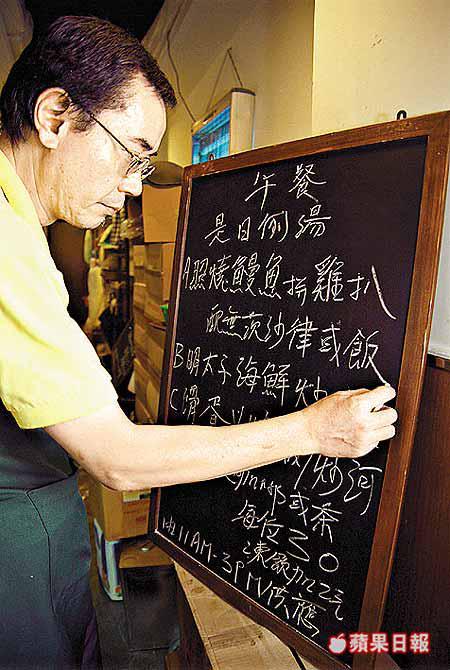 午餐
是日例湯
A照燒鰻魚拼雞扒
配無茨沙律或飯
B明太子海鮮炒
C滑蛋
炒河
啡或茶
每位30
凍飲加2元
由11AM-3PM供應
蘋果日報